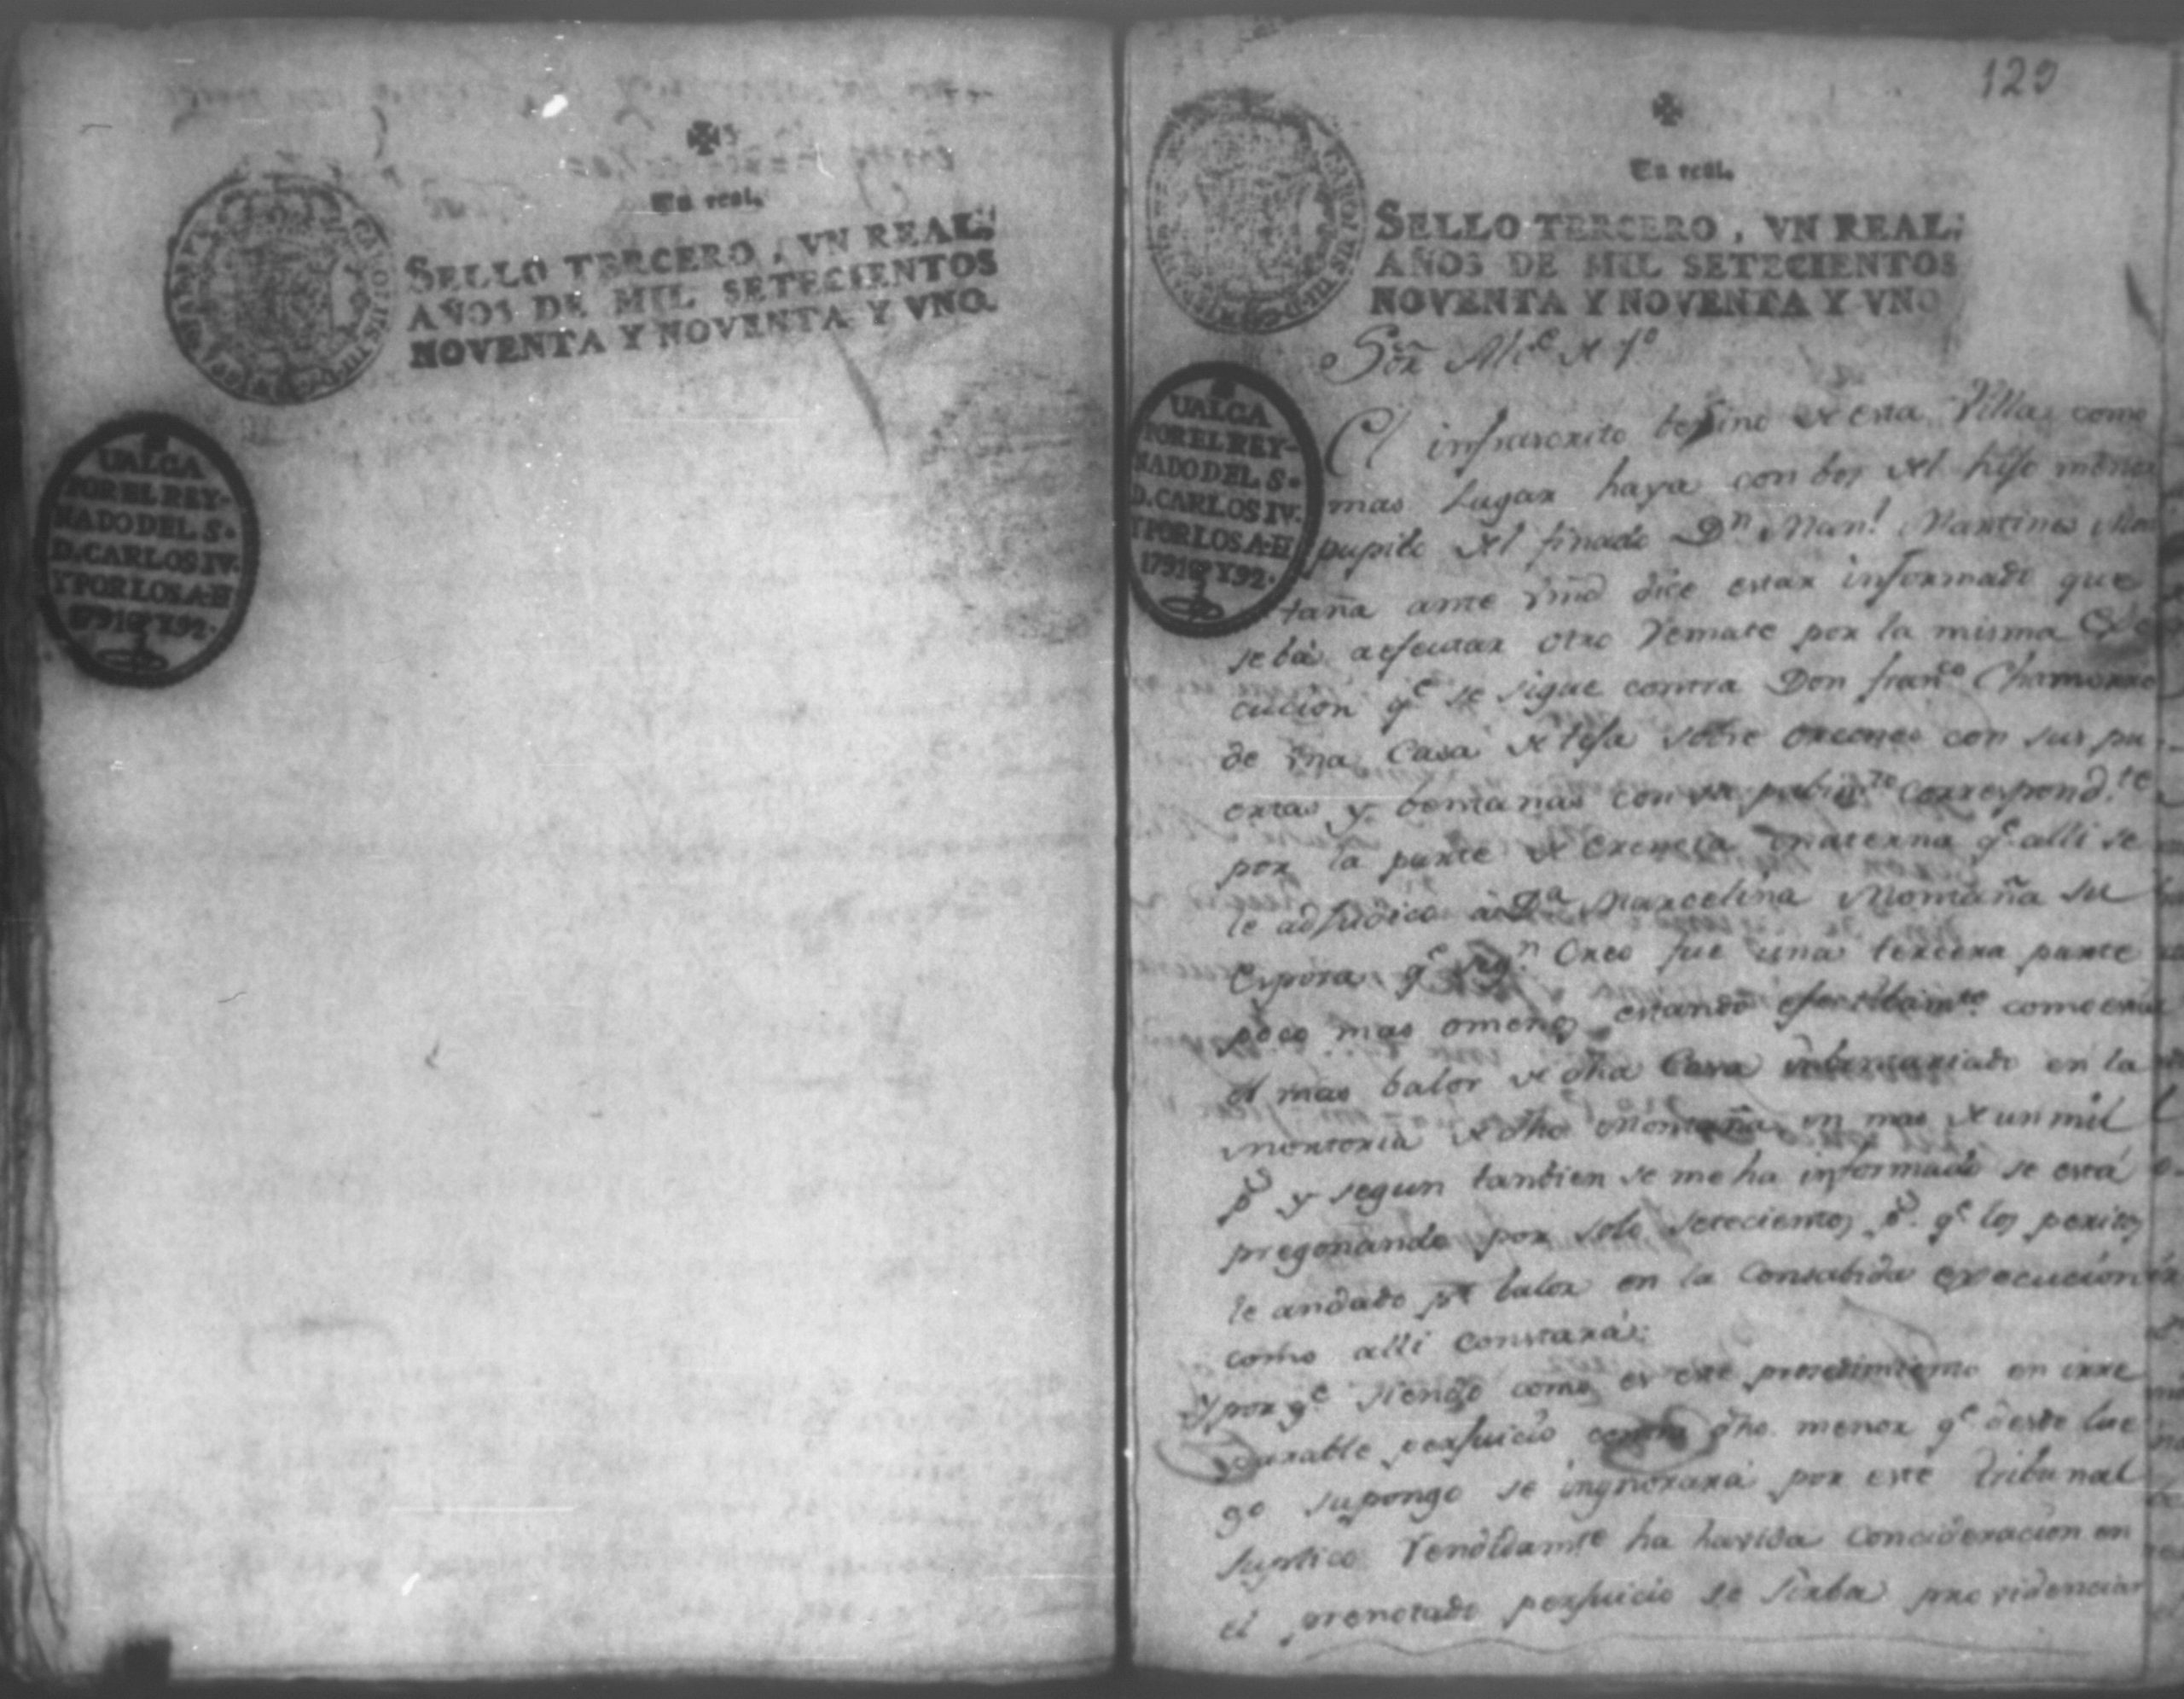 Un real.
SELLO TERCERO, VN REAL:
AÑOS DE MIL SETECIENTOS
NOVENTA Y NOVENTA Y VNO.
VALGA
POR EL REY-
NADO DEL S.
D. CARLOS IV.
Y POR LOS A.
1791 Y 92.
120
Un real.
SELLO TERCERO, VN REAL:
AÑOS DE MIL SETECIENTOS
NOVENTA Y NOVENTA Y VNO
CAROLUS III
VALGA
POR EL REY-
NADO DEL S.
D. CARLOS IV.
Y POR LOS A.
1791 Y 92.
Sor Alce de 1o
El infrascrito besino de esta Villa como
mas lugar haya con bos del hijo menor
pupilo del finado Dn Manl. Martines Mon
taña ante Vmd dice estar informado que
se bá aefeutar otro Remate por la misma Exe
cucion qe se sigue contra Don franco Chamorro
de Vna Casa de teja sobre orcones con sus pu
ertas y bentanas con su pabimte correspondte
por la parte de Erencia materna qe alli se
le adjudico á Da Marcelina Montaña su
Esposa qe segn. Creo fue una tercera parte
poco mas omenos estando efectibamte como está
el mas balor de dha Casa imbentariado en la
mortoria de dho Montaña en mas de un mil
ps y segun tambien se me ha informado se está
pregonando por solo setecientos ps. qe los peritos
le an dado pr balor en la Consabida execucion
como alli Constará:
Y por qe siendo como es este prosedimiento en irre
parable perjuicio contra dho. menor qe desde lue
go supongo se ingnorará por este tribunal
Suplico Rendidamte ha havida Concideracion en
el prenotado perjuicio se sirba providenciar